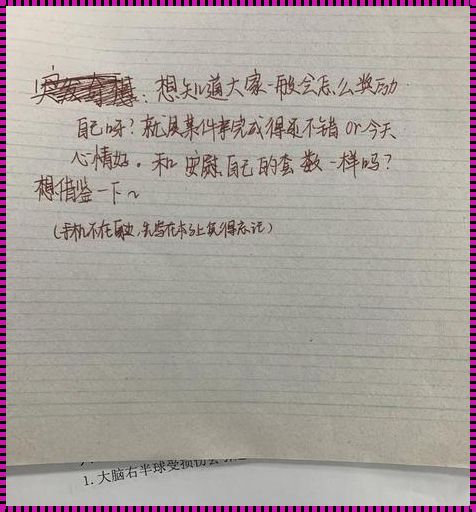 突发奇想：想知道大家一般会怎么奖励
自己呀？就是某件事完成得还不错 or 今天
心情好。和安慰自己的套数一样吗？
想借鉴一下~
（手机不在身边，先写在本子上免得忘记）
1. 大脑右半球受损伤会